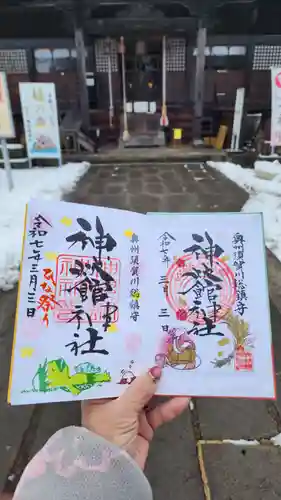 奥州須賀川総鎮守
神炊館神社
令和七年三月三日
ひな祭り
奥州須賀川総鎮守
神炊館神社
令和七年
三月三日